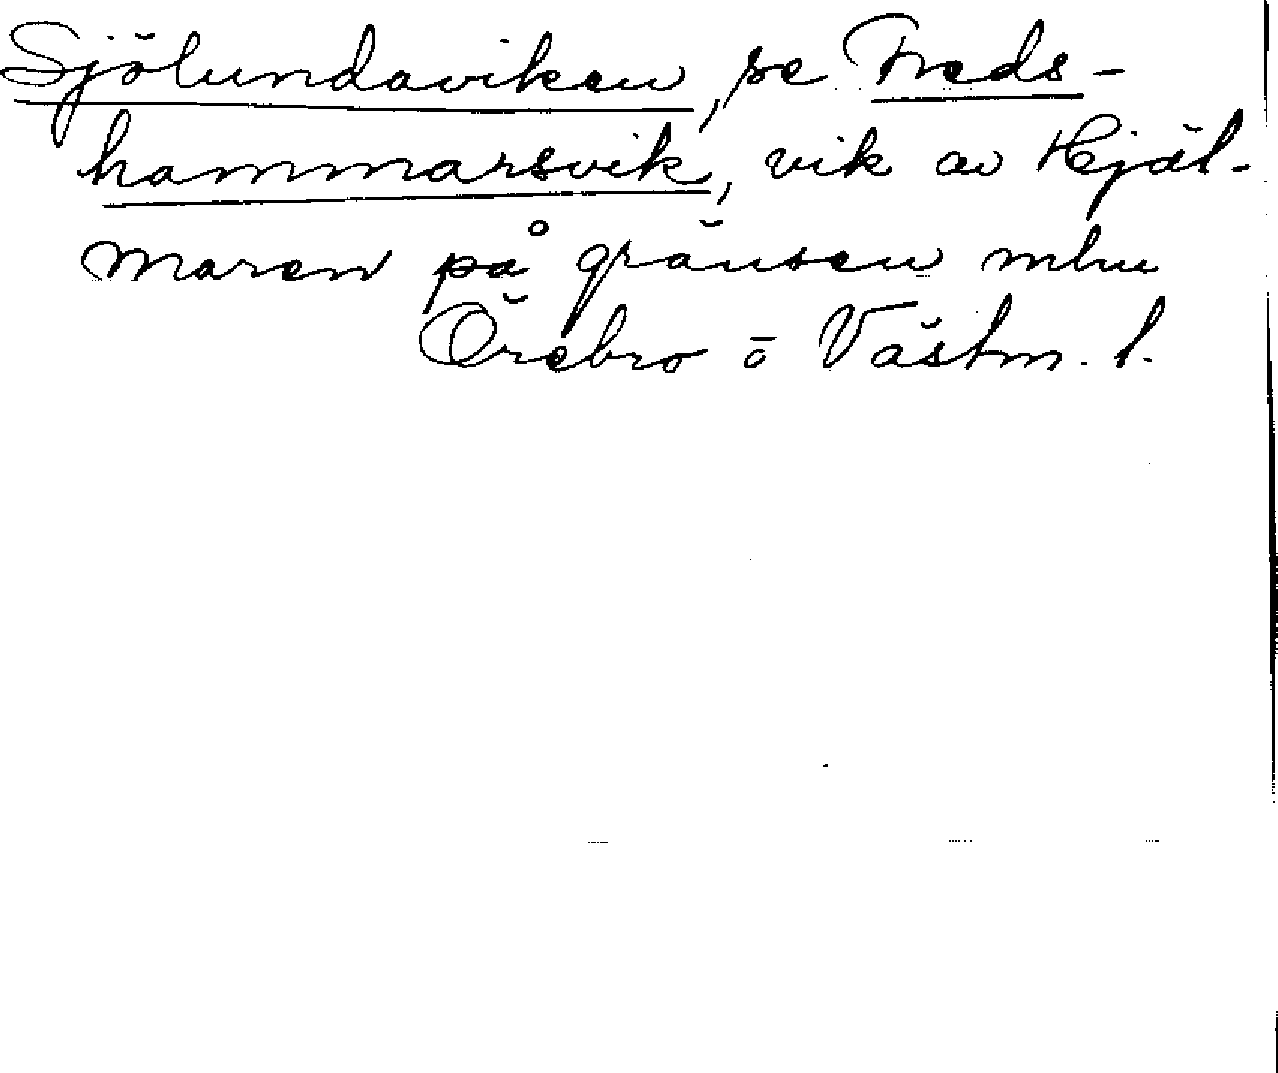 Sjölundaviken, se Freds-
hammarsvik, vik av Hjäl-
maren på gränsen mlnn
Örebro o Västm. l.